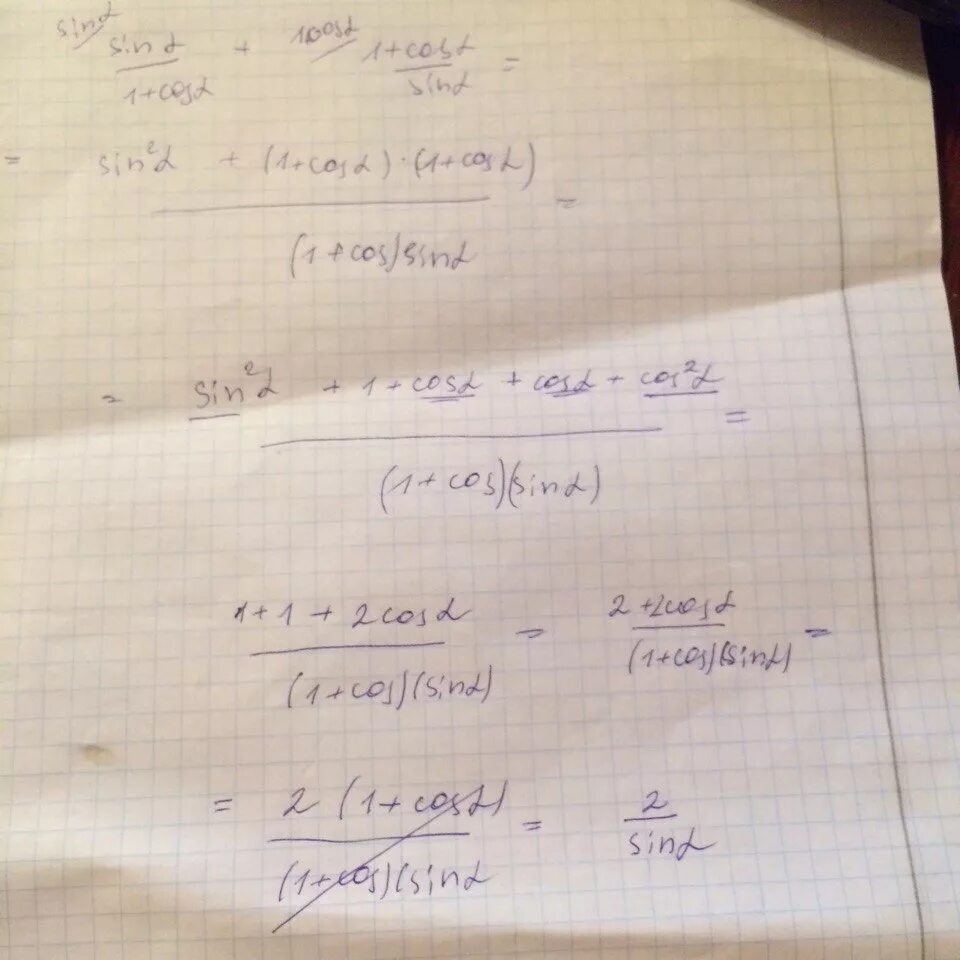 sinα 1+cosα
sinα + 1+cosα =
1+cosα sinα
= sin²α + (1+cosα)·(1+cosα) =
(1+cos)sinα
= sin²α + 1 + cosα + cosα + cos²α =
(1+cos)(sinα)
1+1+2cosα = 2+2cosα =
(1+cos)(sinα) (1+cos)(sinα)
= 2 (1+cosα) = 2
(1+cos)(sinα sinα